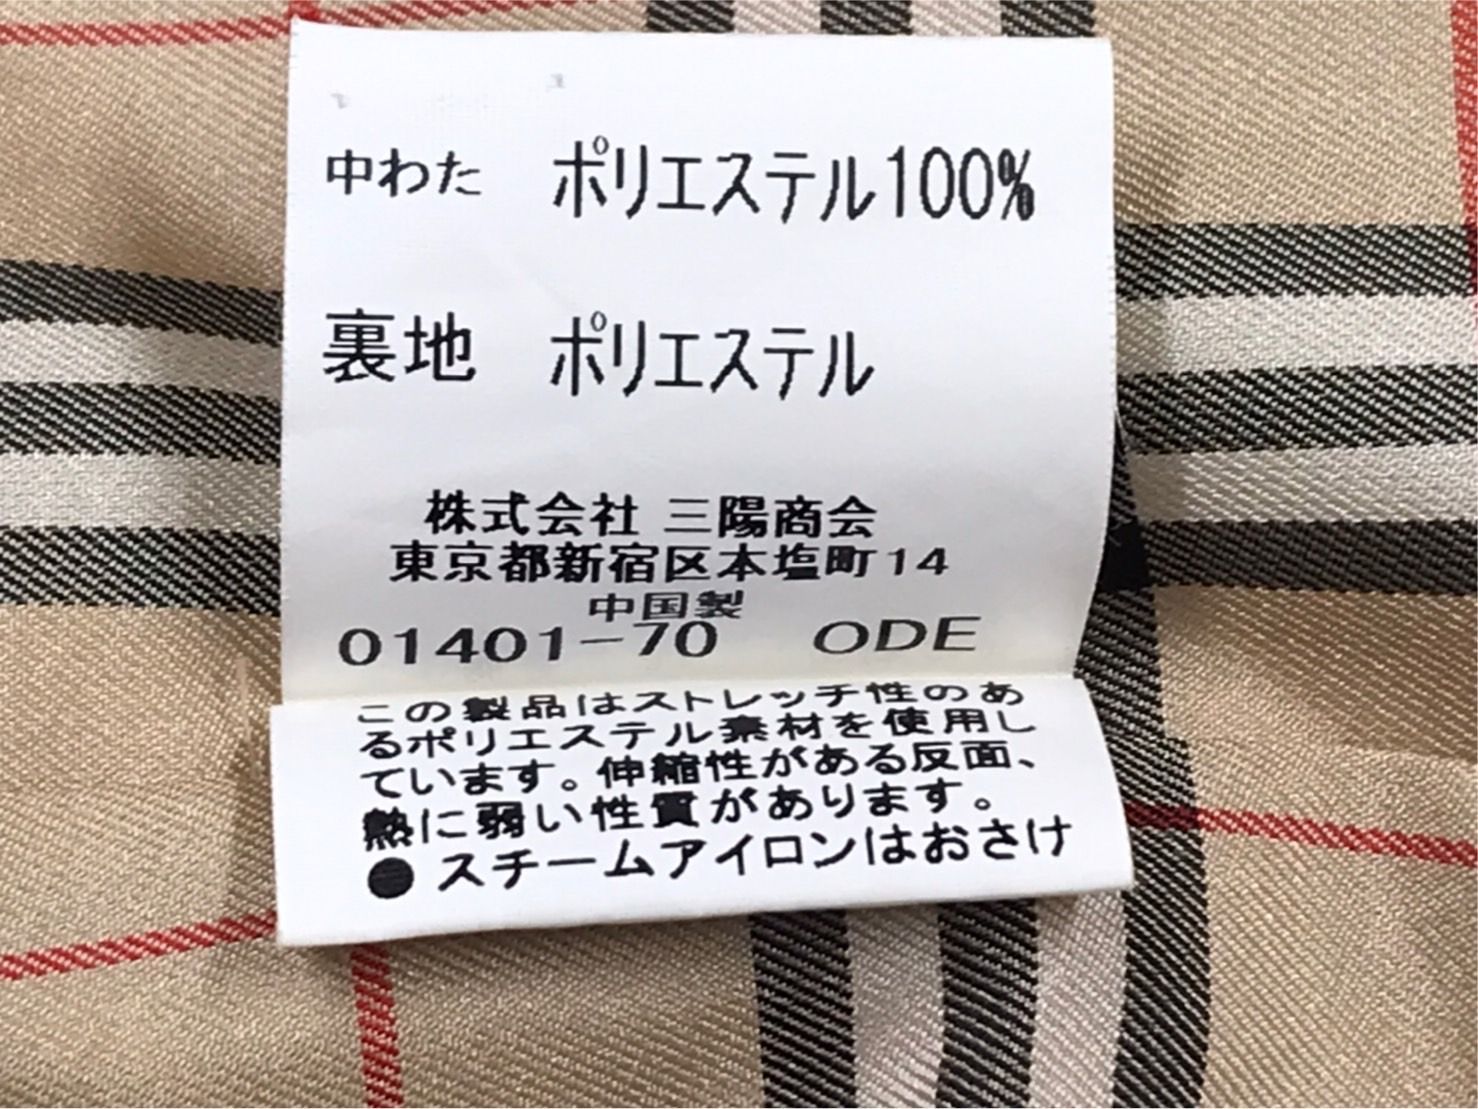 中わた ポリエステル100%
裏地 ポリエステル
株式会社 三陽商会
東京都新宿区本塩町14
中国製
01401-70 ODE
この製品はストレッチ性のあ
るポリエステル素材を使用し
ています。伸縮性がある反面、
熱に弱い性質があります。
● スチームアイロンはおさけ